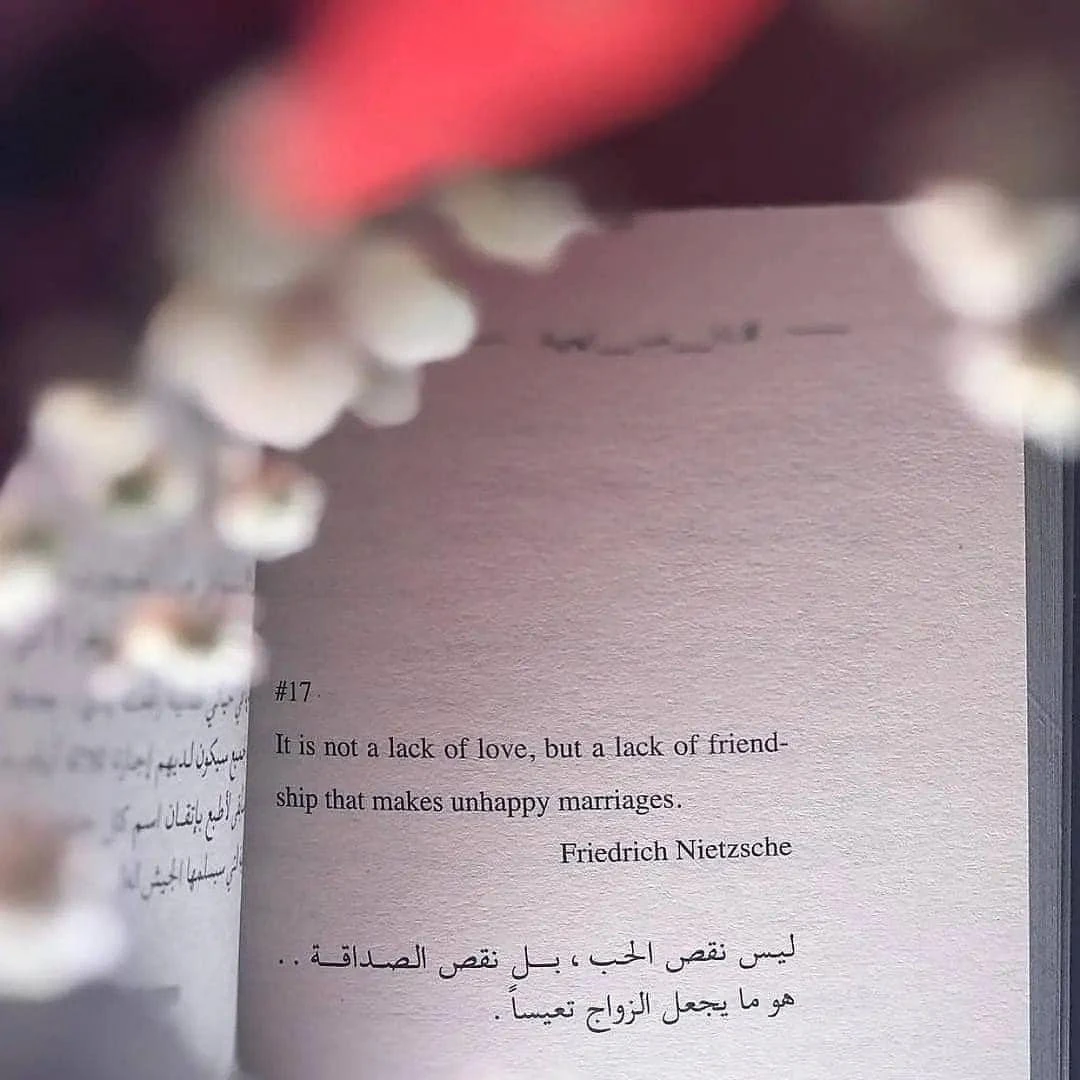 #17
It is not a lack of love, but a lack of friend-
ship that makes unhappy marriages.
Friedrich Nietzsche
ليس نقص الحب ، بــل نقص الصـداقــة . .
هو ما يجعل الزواج تعيساً .
سيكون لديهم
لأطبع بإتقـان اسم
سيسلمها الجيش